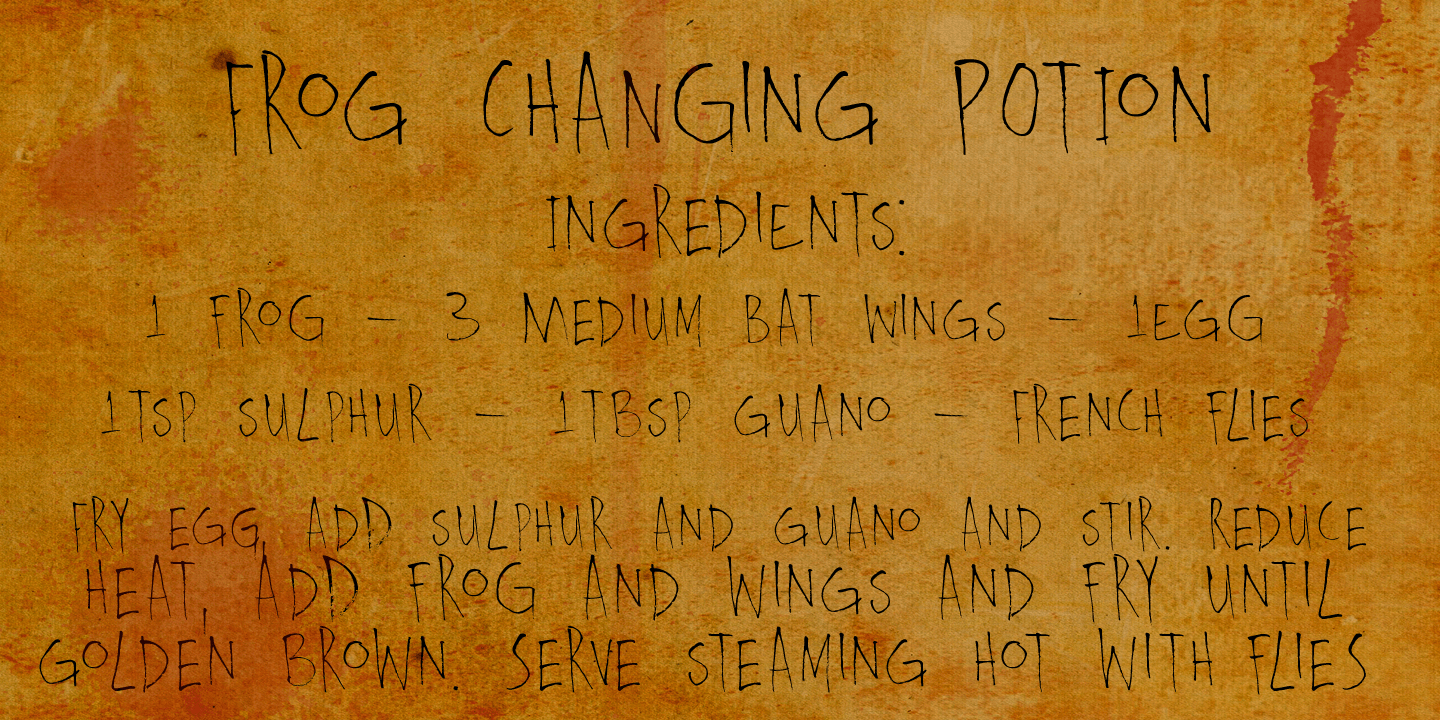 FROG CHANGING POTION
INGREDIENTS:
1 FROG - 3 MEDIUM BAT WINGS - 1EGG
1TSP SULPHUR - 1TBSP GUANO - FRENCH FLIES
FRY EGG, ADD SULPHUR AND GUANO AND STIR. REDUCE
HEAT, ADD FROG AND WINGS AND FRY UNTIL
GOLDEN BROWN. SERVE STEAMING HOT WITH FLIES